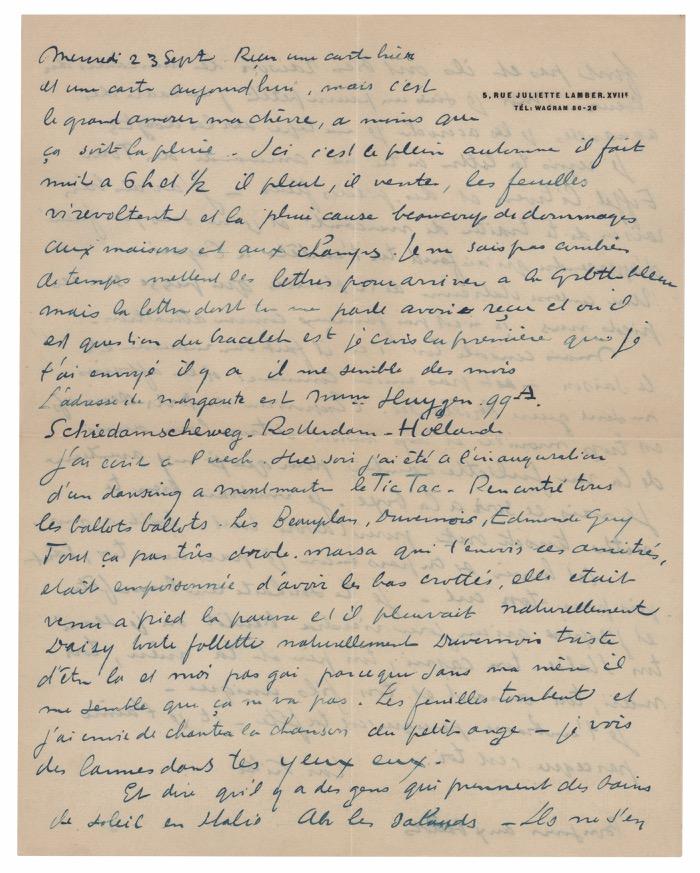 5, RUE JULIETTE LAMBER. XVIIe
TÉL: WAGRAM 80-26
Mercredi 23 Sept. Reçu une carte hier
et une carte aujourd'hui, mais c'est
le grand amour ma chère, a moins que
ça soit la pluie. Ici c'est le plein automne il fait
nuit a 6 h et 1/2 il pleut, il vente, les feuilles
virevoltent et la pluie cause beaucoup de dommages
aux maisons et aux champs. Je ne sais pas combien
de temps mettent les lettres pour arriver a la Grotte bleue
mais la lettre dont tu me parle avoir reçu et où il
est question du bracelet est je crois la première que je
t'ai envoyé il y a il me semble des mois
L'adresse de Margarete est Mme Huygen. 99A.
Schiedamscheweg. Rotterdam - Hollande
j'ai écrit a Puech. Hier soir j'ai été a l'inauguration
d'un dancing a Montmartre le Tic Tac - Rencontré tous
les ballots ballots. Les Beauplan, Duvernois, Edmonde Guy
Tout ça pas très drole. Marsa qui t'envois ces amitiés,
etait empoisonnée d'avoir les bas crottés, elle etait
venu a pied la pauvre et il pleuvait naturellement
Daisy toute follette naturellement Duvernois triste
d'être la et moi pas gai parceque sans ma mère il
me semble que ça ne va pas. Les feuilles tombent et
j'ai envie de chanter la chanson du petit ange - je vois
des larmes dans tes yeux eux.
Et dire qu'il y a des gens qui prennent des bains
de soleil en Italie Ah les salauds - Ils ne s'en